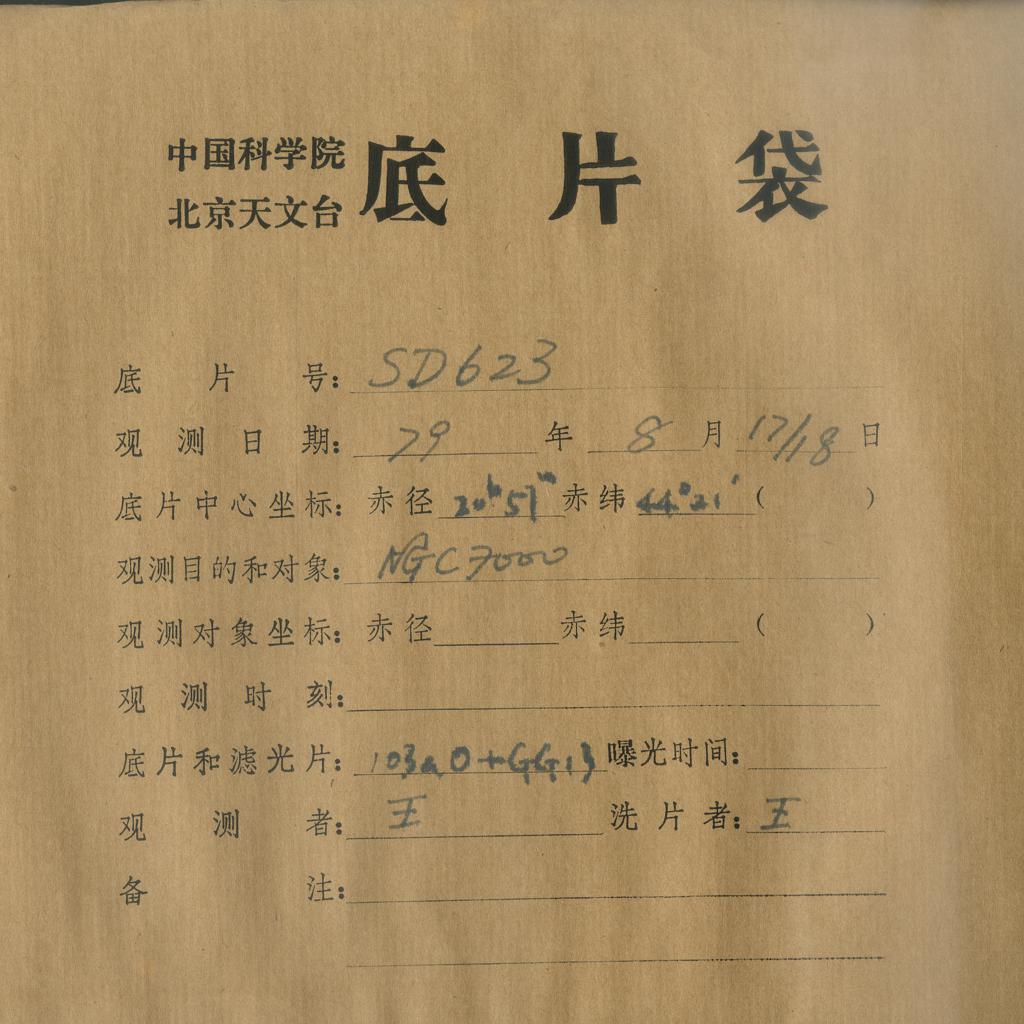 中国科学院
北京天文台
底片袋
底片号: SD623
观测日期: 79年8月17/18日
底片中心坐标: 赤径 20h57m 赤纬 44°21′ ( )
观测目的和对象: NGC7000
观测对象坐标: 赤径 赤纬 ( )
观测时刻:
底片和滤光片: 103aO+GG13 曝光时间:
观测者: 王 洗片者: 王
备注: